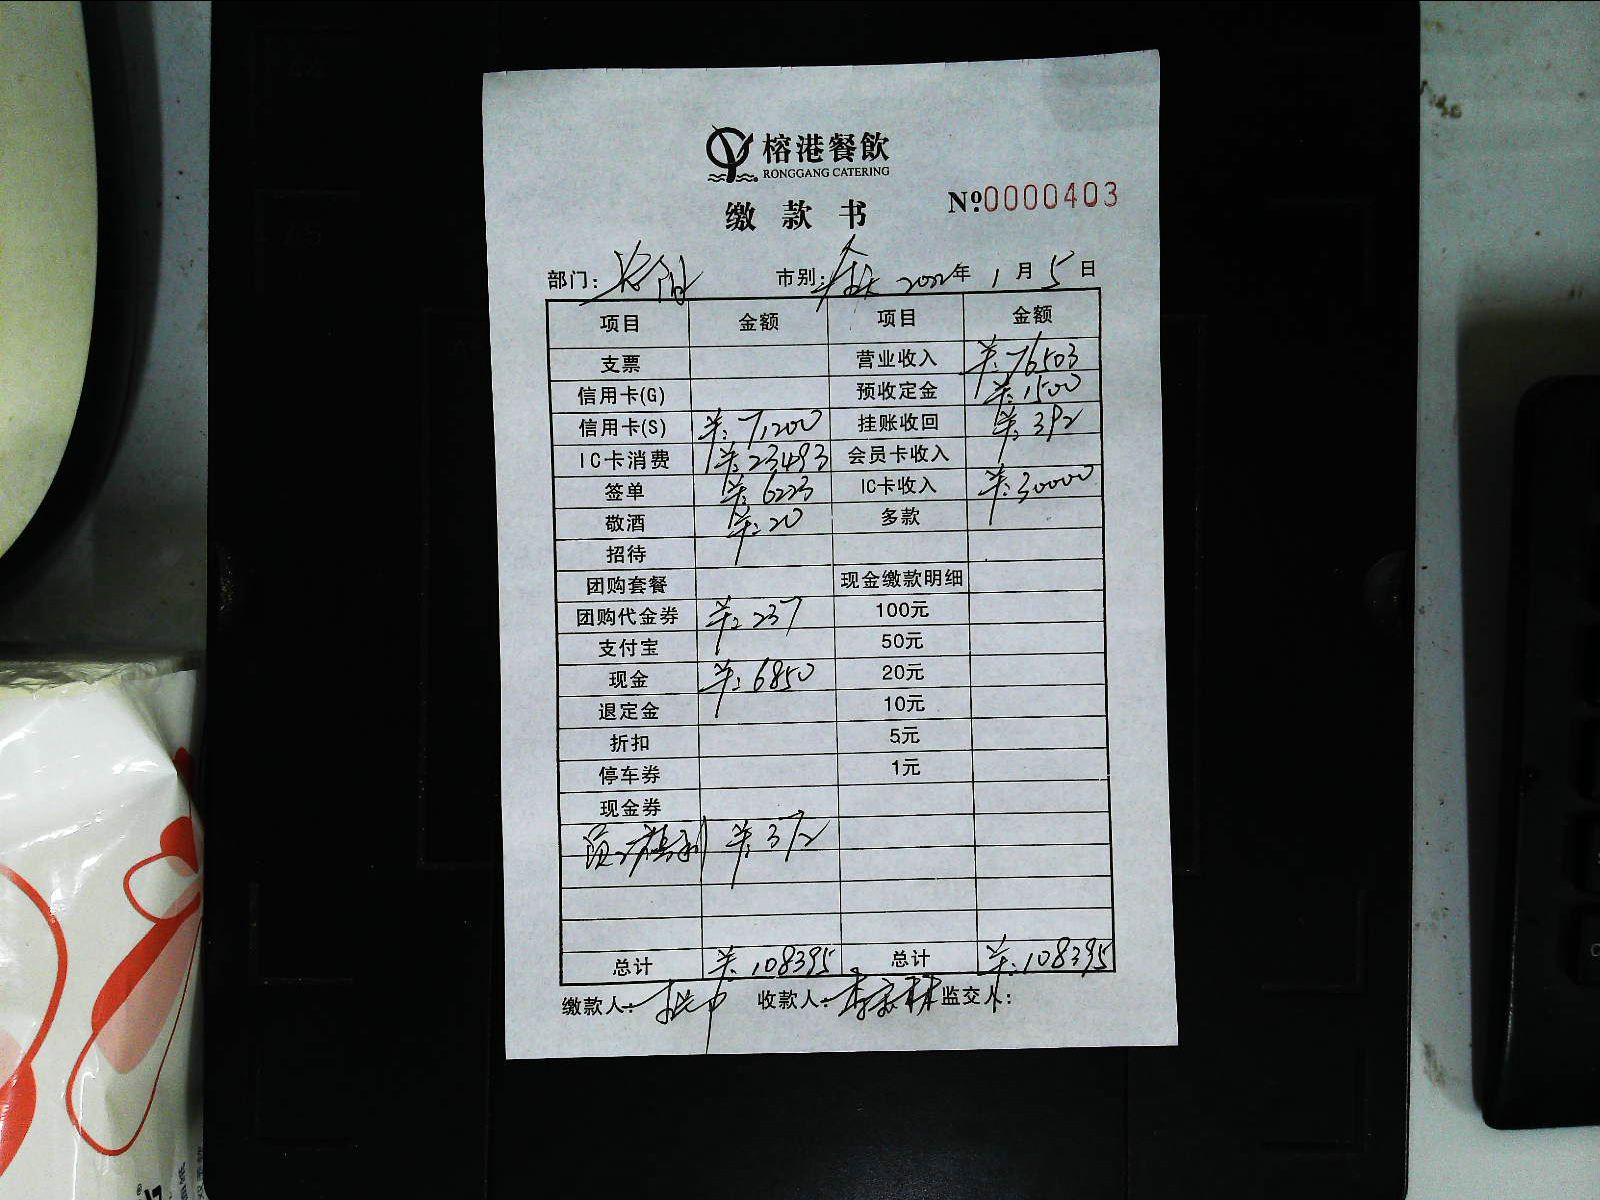 榕港餐飲
RONGGANG CATERING
缴款书
№0000403
部门: 市别: 2022年1月5日
项目 金额 项目 金额
支票 营业收入 ¥:76503
信用卡(G) 预收定金 ¥:1500
信用卡(S) ¥:71200 挂账收回 ¥:392
IC卡消费 ¥:23493 会员卡收入
签单 ¥:6223 IC卡收入 ¥:30000
敬酒 ¥:20 多款
招待
团购套餐 现金缴款明细
团购代金券 ¥:237 100元
支付宝 50元
现金 ¥:6850 20元
退定金 10元
折扣 5元
停车券 1元
现金券
¥:372
总计 ¥:108395 总计 ¥:108395
缴款人: 收款人: 监交人: